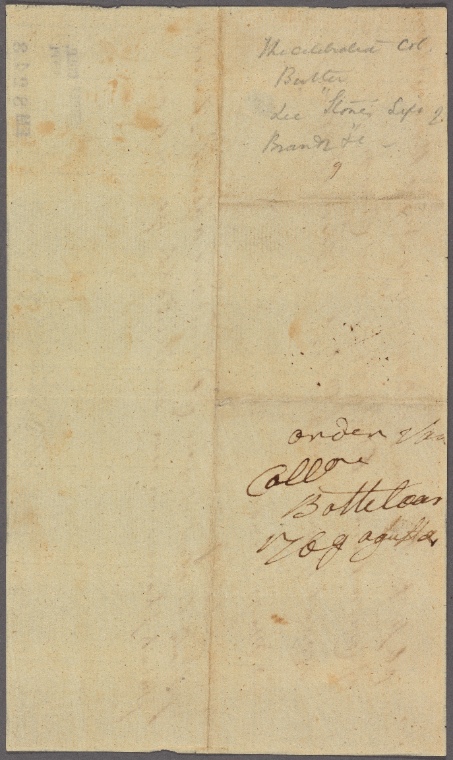 The celebrated Col.
Butler
See "Stone's Life of
Brandt" &c
9
order
Coll
Bottelaar
1769